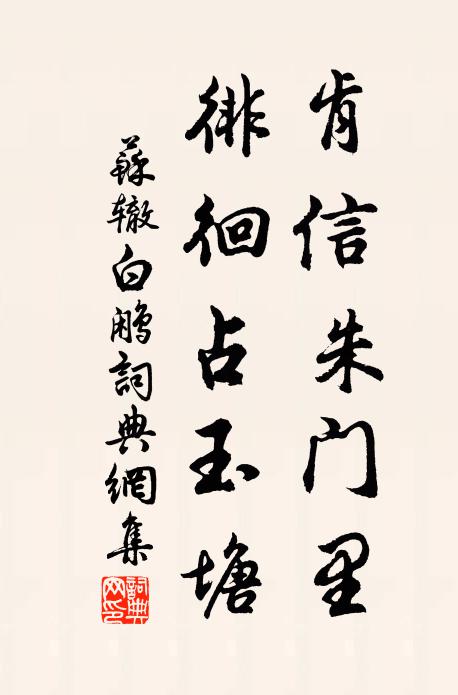 肯信朱门里
徘徊占玉塘
蘇辙白鹇詞典網集
詞典网印